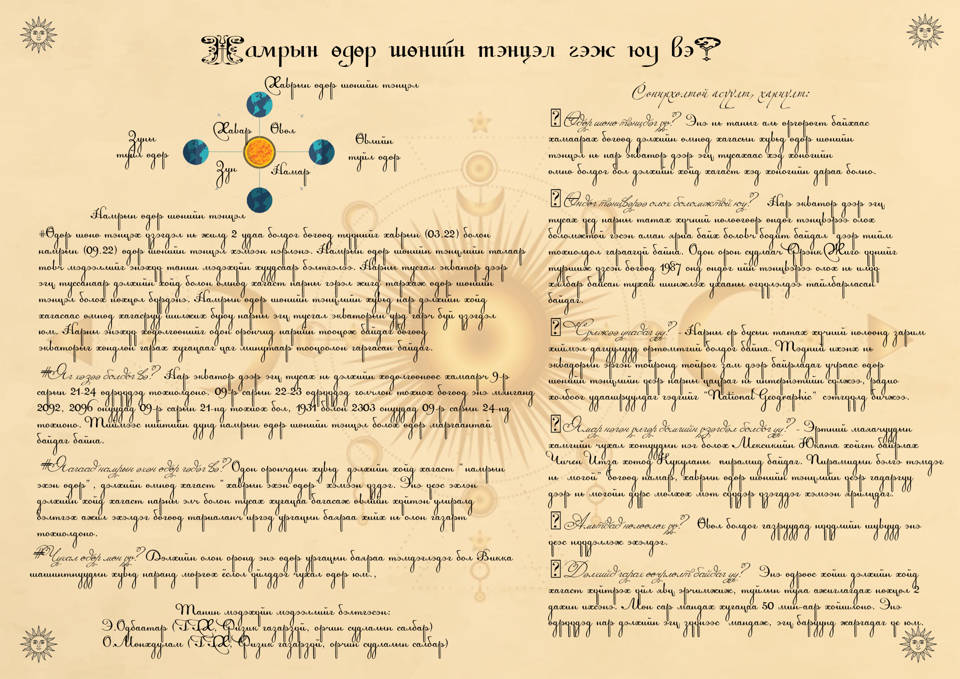 Намрын өдөр шөнийн тэнцэл гэж юу вэ?
Хаврын өдөр шөнийн тэнцэл
Хавар
Өвөл
Зуны
туйл өдөр
Өвлийн
туйл өдөр
Зун
Намар
Намрын өдөр шөнийн тэнцэл
#Өдөр шөнө тэнцэх үзэгдэл нь жилд 2 удаа болдог бөгөөд түүнийг хаврын (03.22) болон
намрын (09.22) өдөр шөнийн тэнцэл хэмээн нэрлэнэ. Намрын өдөр шөнийн тэнцлийн талаар
товч мэдээллийг энэхүү танин мэдэхүйн хуудсаар бэлтгэлээ. Нарны тусгал экватор дээр
эгц тусснаар дэлхийн хойд болон өмнөд хагаст нарны гэрэл жигд түгээж өдөр шөнийн
тэнцэл болох нөхцөл бүрдэнэ. Намрын өдөр шөнийн тэнцлийн хувьд нар дэлхийн хойд
хагасаас өмнөд хагасруу шилжих буюу нарны эгц тусгал экваторын урд гарч буй үзэгдэл
юм. Нарны энэхүү хөдөлгөөнийг одон орончид нарийн тооцож байдаг бөгөөд
экваторыг хөндлөн гарах хугацааг цаг минутаар тооцоолон гаргасан байдаг.
#Яг хэзээ болдог вэ? Нар экватор дээр эгц тусах нь дэлхийн хөдөлгөөнөөс хамаарч 9-р
сарын 21-24 өдрүүдэд тохиолдоно. 09-р сарын 22-23 өдрүүдэд голчлон тохиох бөгөөд энэ мянганд
2092, 2096 онуудад 09-р сарын 21-нд тохиох бол, 1931 болон 2303 онуудад 09-р сарын 24-нд
тохионо. Тиймээс нийтийн дунд намрын өдөр шөнийн тэнцэл болох өдөр маргаантай
байдаг байна.
#Яагаад намрын эхэн өдөр гэдэг вэ? Одон орончдын хувьд, дэлхийн хойд хагаст "намрын
эхэн өдөр", дэлхийн өмнөд хагаст "хаврын эхэн өдөр" хэмээн үздэг. Энэ үеэс эхлэн
дэлхийн хойд хагаст нарны элч болон тусах хугацаа багасаж өвлийн хүйтэн улиралд
бэлтгэх ажил эхэлдэг бөгөөд тариаланч иргэд ургацын баяраа хийх нь олон газарт
тохиолдоно.
#Чухал өдөр мөн үү? Дэлхийн олон оронд энэ өдөр ургацын баяраа тэмдэглэдэг бол Викка
шашинтнуудын хувьд наранд мөргөх ёслол үйлддэг чухал өдөр юм.,
Танин мэдэхүйн мэдээллийг бэлтгэсэн:
Э.Одбаатар (ГГХ, Физик газарзүй, орчин судлалын салбар)
О.Мөнхдулам (ГГХ, Физик газарзүй, орчин судлалын салбар)
Сонирхолтой асуулт, хариулт:
Өдөр шөнө тэнцдэг үү? Энэ нь таныг аль өргөрөгт байхаас
хамаарах бөгөөд дэлхийн өмнөд хагасын хувьд өдөр шөнийн
тэнцэл нь нар экватор дээр эгц тусахаас хэд хоногийн
өмнө болдог бол дэлхийн хойд хагаст хэд хоногийн дараа болно.
Өндөг тэнцвэрээ олох боломжтой юу? Нар экватор дээр эгц
тусах үед нарны татах хүчний нөлөөгөөр өндөг тэнцвэрээ олох
боломжтой гэсэн алаг яриа байж боловч бодит байдал дээр тийм
тохиолдол гараагүй байна. Одон орон судлаач Фрэнк Жиго үүнийг
туршиж үзсэн бөгөөд 1987 онд өндөг ийн тэнцвэрээ олох нь илүү
хялбар байсан тухай шинжлэх ухааны өгүүлэлдээ тайлбарласан
байдаг.
Сүлжээ унадаг уу? - Нарны ер бусын татах хүчний нөлөөнд зарим
хиймэл дагуулууд өртөмтгий болдог байна. Тэдний ихэнх нь
экваторын эргэн тойронд тойрог зам дээр байрладаг учраас өдөр
шөнийн тэнцлийн үеэр нарны цацраг нь интернэтийн сүлжээ, радио
холбоог удаашруулдаг гэдгийг "National Geographic" сэтгүүлд бичжээ.
Ямар нэгэн ид шидийн үзэгдэл болдог уу? - Эртний малачуудын
хамгийн чухал хотуудын нэг болох Мексикийн Юката хойгт байрлах
Чичен Итза хотод Кукулканы пирамид байдаг. Пирамидын бэлгэ тэмдэг
нь "могой" бөгөөд намар, хаврын өдөр шөнийн тэнцлийн үеэр гадаргуу
дээр нь могойн дүрс мөлхөж мэт сүүдэр үзэгддэг хэмээн ярилцдаг.
Амьтдад нөлөөлөх үү? Өвөл болдог газруудад нүүдлийн шувууд энэ
үеэс нүүдэллэж эхэлдэг.
Дэлхийд гарах өөрчлөлт байдаг уу? Энэ өдрөөс хойш дэлхийн хойд
хагаст хүйтрэх үйл явц эрчимжиж, туйлын туяа ажиглагдах нөхцөл 2
дахин ихэснэ. Мөн сар мандах хугацаа 50 мин-аар хойшилно. Энэ
өдрүүдэд нар дэлхийн эгц зүүнээс мандаж, эгц баруунд жаргадаг үе юм.